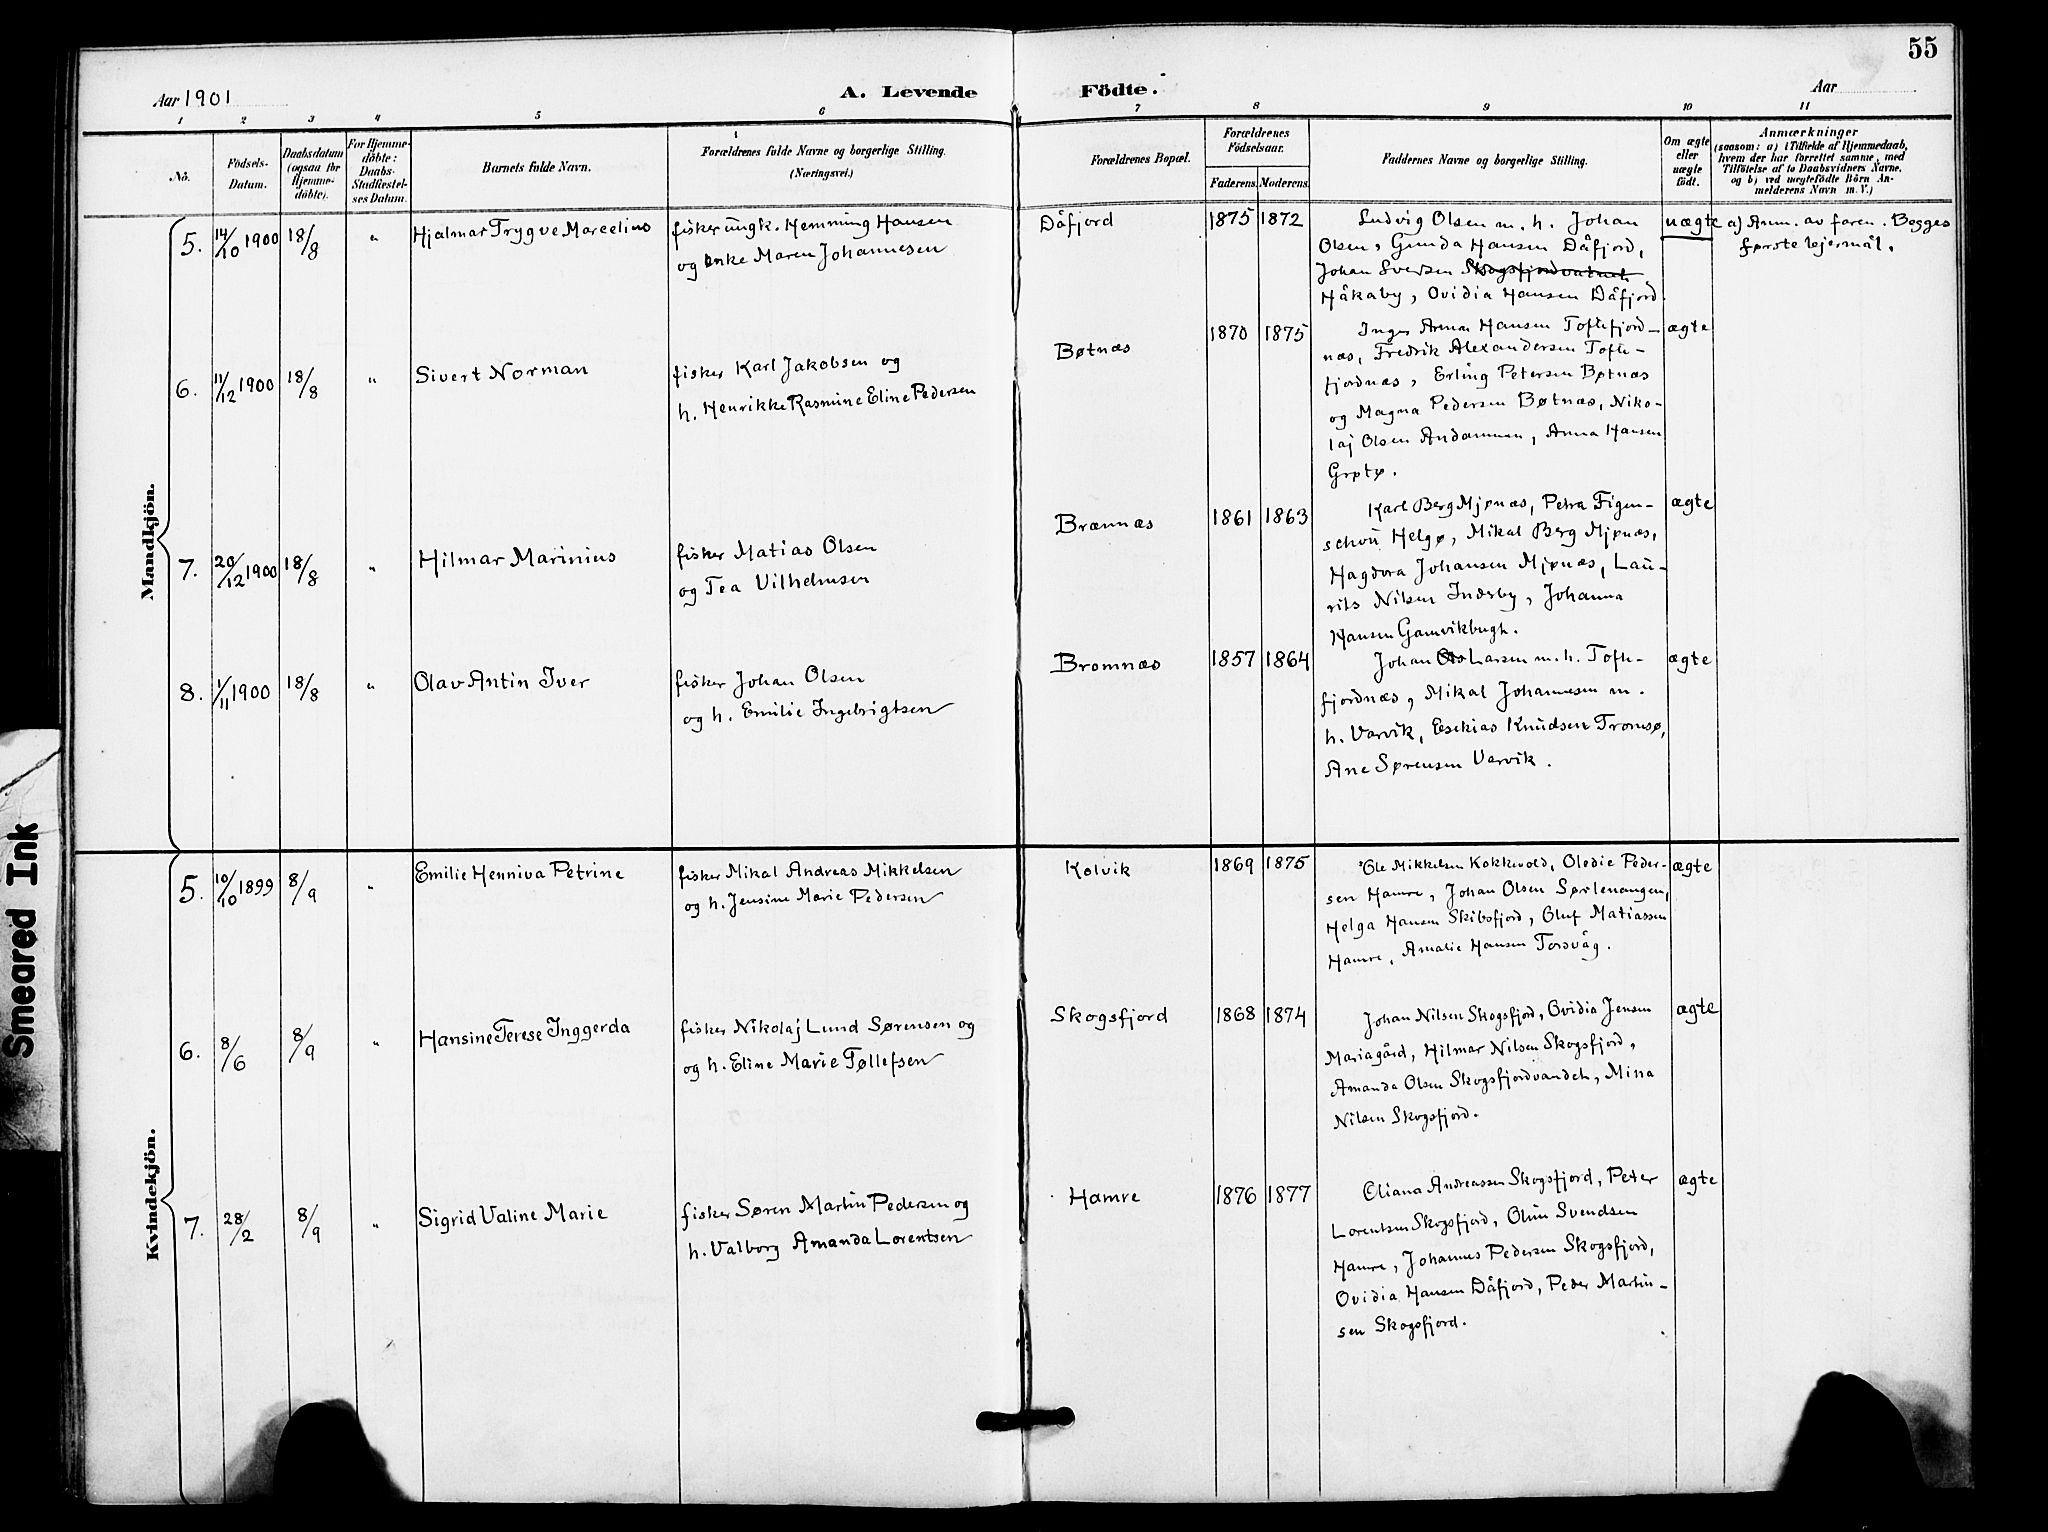 55
Aar 1901
A. Levende Födte.
Aar
1 2 3 4 5 6 7 8 9 10 11
No.
Födsels-
Datum.
Daabsdatum
(ogsaa for
Hjemme-
döbte).
For Hjemme-
döbte:
Daabs-
Stadfæstel-
ses Datum.
Barnets fulde Navn.
Forældrenes fulde Navne og borgerlige Stilling.
(Næringsvei.)
Forældrenes Bopæl.
Forældrenes
Födselsaar.
Faderens. Moderens.
Faddernes Navne og borgerlige Stilling.
Om ægte
eller
uægte
födt.
Anmærkninger
(saasom: a) i Tilfælde af Hjemmedaab,
hvem der har forrettet samme, med
Tilföielse af to Daabsvidners Navne,
og b) ved uægtefödte Börn An-
melderens Navn m. V.)
Mandkjön.
5. 14/10 1900 18/8 " Hjalmar Trygve Marcelius
fisker ungk. Hemming Hansen
og enke Maren Johannesen
Dåfjord 1875 1872
Ludvig Olsen m. h. Johan
Olsen, Gunda Hansen Dåfjord,
Johan Sversen Skogsfjordvatnet
Håkaby, Ovidia Hansen Dåfjord.
uægte a) Anm. av faren. Begges
første lejermål.
6. 11/12 1900 18/8 " Sivert Norman
fisker Karl Jakobsen og
h. Henrikke Rasmine Eline Pedersen
Bøtnæs 1870 1875
Inger Anna Hansen Toftefjord-
næs, Fredrik Alexandersen Tofte-
fjordnæs, Erling Petersen Bøtnæs
og Magna Pedersen Bøtnæs, Niko-
laj Olsen Andammen, Anna Hansen
Grøtø.
ægte
7. 20/12 1900 18/8 " Hilmar Marinius
fisker Matias Olsen
og Tea Vilhelmsen
Brænnæs 1861 1863
Karl Berg Mjønæs, Petra Figen-
schou Helgø, Mikal Berg Mjønæs,
Hagdora Johansen Mjønæs, Lau-
rits Nilsen Indreby, Johanna
Hansen Gamvikbugt.
ægte
8. 1/11 1900 18/8 " Olav Antin Iver
fisker Johan Olsen
og h. Emilie Ingebrigtsen
Bromnæs 1857 1864
Johan Larsen m. h. Tofte-
fjordnæs, Mikal Johannesen m.
h. Varvik, Esekias Knudsen Tromsø,
Ane Sørensen Varvik.
ægte
Kvindekjön.
5. 10/10 1899 8/9 " Emilie Henniva Petrine
fisker Mikal Andreas Mikkelsen
og h. Jensine Marie Pedersen
Kolvik 1869 1875
Ole Mikkelsen Kokkevold, Oledie Peder-
sen Hamre, Johan Olsen Sørlenangen,
Helga Hansen Skibsfjord, Oluf Matiassen
Hamre, Amalie Hansen Torsvåg.
ægte
6. 8/6 8/9 " Hansine Terese Inggerda
fisker Nikolaj Lund Sørensen og
og h. Eline Marie Tøllefsen
Skogsfjord 1868 1874
Johan Nilsen Skogsfjord, Ovidia Jensen
Mariagård, Hilmar Nilsen Skogsfjord,
Amanda Olsen Skogsfjordvandet, Mina
Nilsen Skogsfjord.
ægte
7. 28/2 8/9 " Sigrid Valine Marie
fisker Søren Martin Pedersen og
h. Valborg Amanda Lorentsen
Hamre 1876 1877
Eliana Andreassen Skogsfjord, Peter
Lorentsen Skogsfjord, Olùn Svendsen
Hamre, Johannes Pedersen Skogsfjord,
Ovidia Hansen Dåfjord, Peder Martin-
sen Skogsfjord.
ægte
Smeared Ink